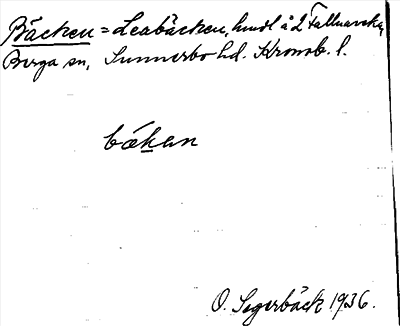 Bäcken = Leabäcken, hmdl å 2 Tallnaveka,
Berga sn, Sunnerbo hd. Kronob. l.
bækan
O. Segerbäck 1936.